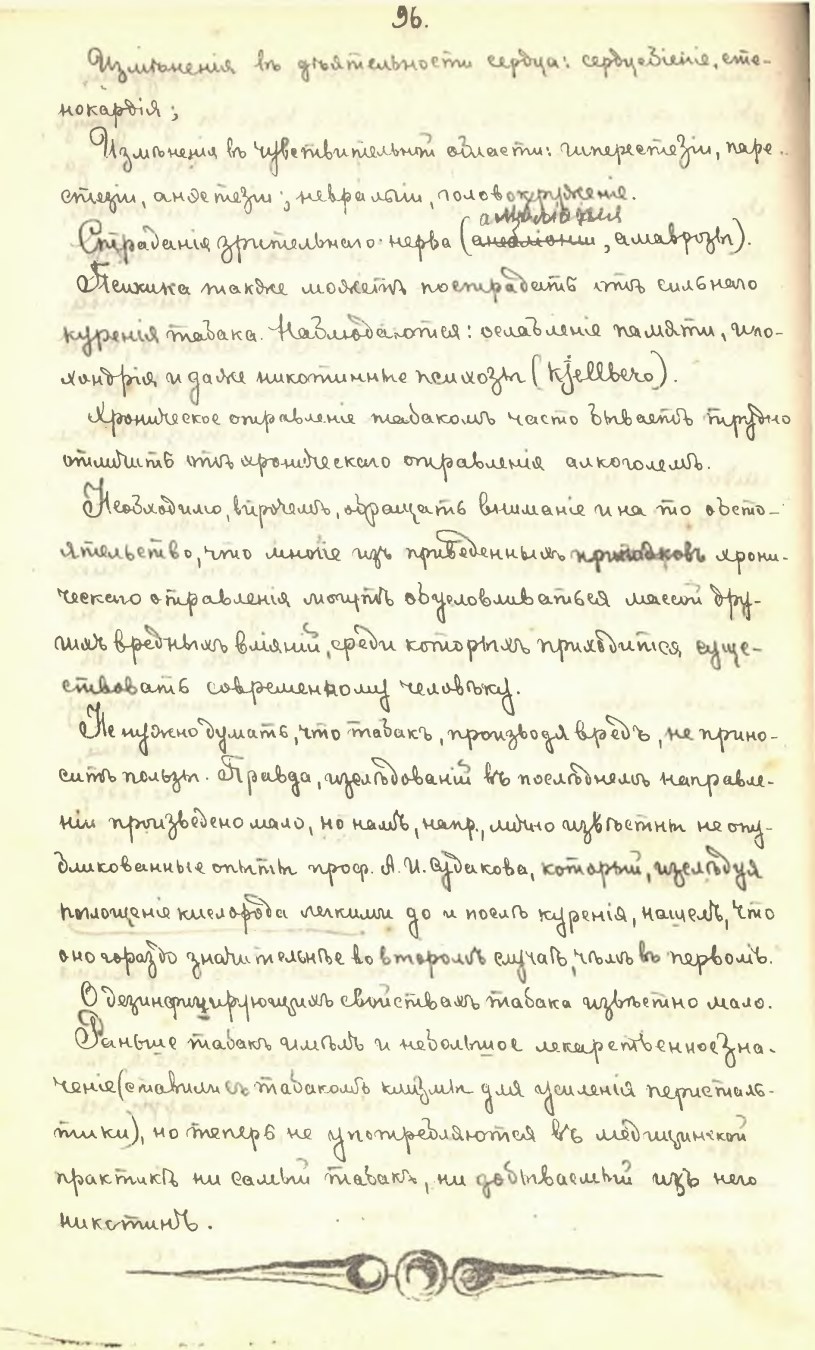 96.
Измѣненія въ дѣятельности сердца: сердцебіеніе, сте-
нокардія;
Измѣненія въ чувствительной области: гиперестезіи, паре-
стезіи, анэстезіи; невралгіи, головокруженіе.
амбліопія
Страданія зрительнаго нерва (, амаврозы).
Психика также можетъ пострадать отъ сильнаго
куренія табака. Наблюдаются: ослабленіе памяти, ипо-
хондрія и даже никотинные психозы (Kjellberg).
Хроническое отравленіе табакомъ часто бываетъ трудно
отличить отъ хроническаго отравленія алкоголемъ.
Необходимо, впрочемъ, обращать вниманіе и на то обсто-
ятельство, что многіе изъ приведенныхъ припадковъ хрони-
ческаго отравленія могутъ обусловливаться массой дру-
гихъ вредныхъ вліяній, среди которыхъ приходится суще-
ствовать современному человѣку.
Не нужно думать, что табакъ, производя вредъ, не прино-
ситъ пользы. Правда, изслѣдованій въ послѣднемъ направле-
ніи произведено мало, но намъ, напр., лично извѣстны не опу-
бликованные опыты проф. А. И. Судакова, который, изслѣдуя
поглощеніе кислорода легкими до и послѣ куренія, нашелъ, что
оно гораздо значительнѣе во второмъ случаѣ, чѣмъ въ первомъ.
О дезинфицирующихъ свойствахъ табака извѣстно мало.
Раньше табакъ имѣлъ и небольшое лекарственное зна-
ченіе (ставили съ табакомъ клизмы для усиленія перисталь-
тики), но теперь не употребляются въ медицинской
практикѣ ни самый табакъ, ни добываемый изъ него
никотинъ.